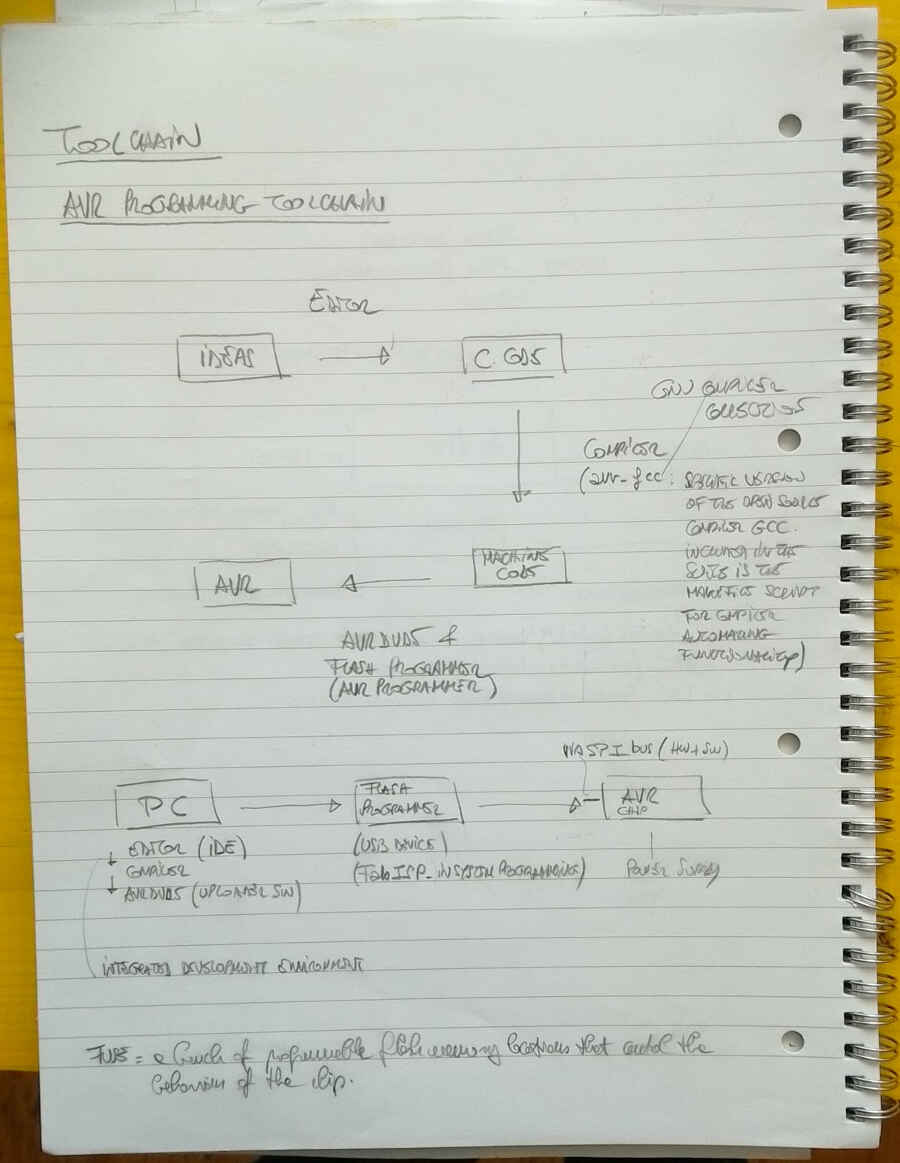 TOOLCHAIN
AVR PROGRAMMING TOOLCHAIN
EDITOR
IDEAS
C. CODE
GNU COMPILER
COLLECTION
COMPILER
(avr-gcc: SPECIFIC VERSION
OF THE OPEN SOURCE
COMPILER GCC.
INCLUDED IN THE
SUITE IS THE
MAKEFILE SCRIPT
FOR COMPILER
AUTOMATING
FUNCTIONALITY)
MACHINE
CODE
AVR
AVRDUDE &
FLASH PROGRAMMER
(AVR PROGRAMMER)
VIA SPI bus (HW+SW)
PC
FLASH
PROGRAMMER
AVR
CHIP
EDITOR (IDE)
COMPILER
AVRDUDE (UPLOADER SW)
(USB DEVICE)
ISP_IN SYSTEM PROGRAMMING)
POWER SUPPLY
INTEGRATED DEVELOPMENT ENVIRONMENT
FUSE = a bunch of programmable flash memory locations that control the
behaviour of the chip.